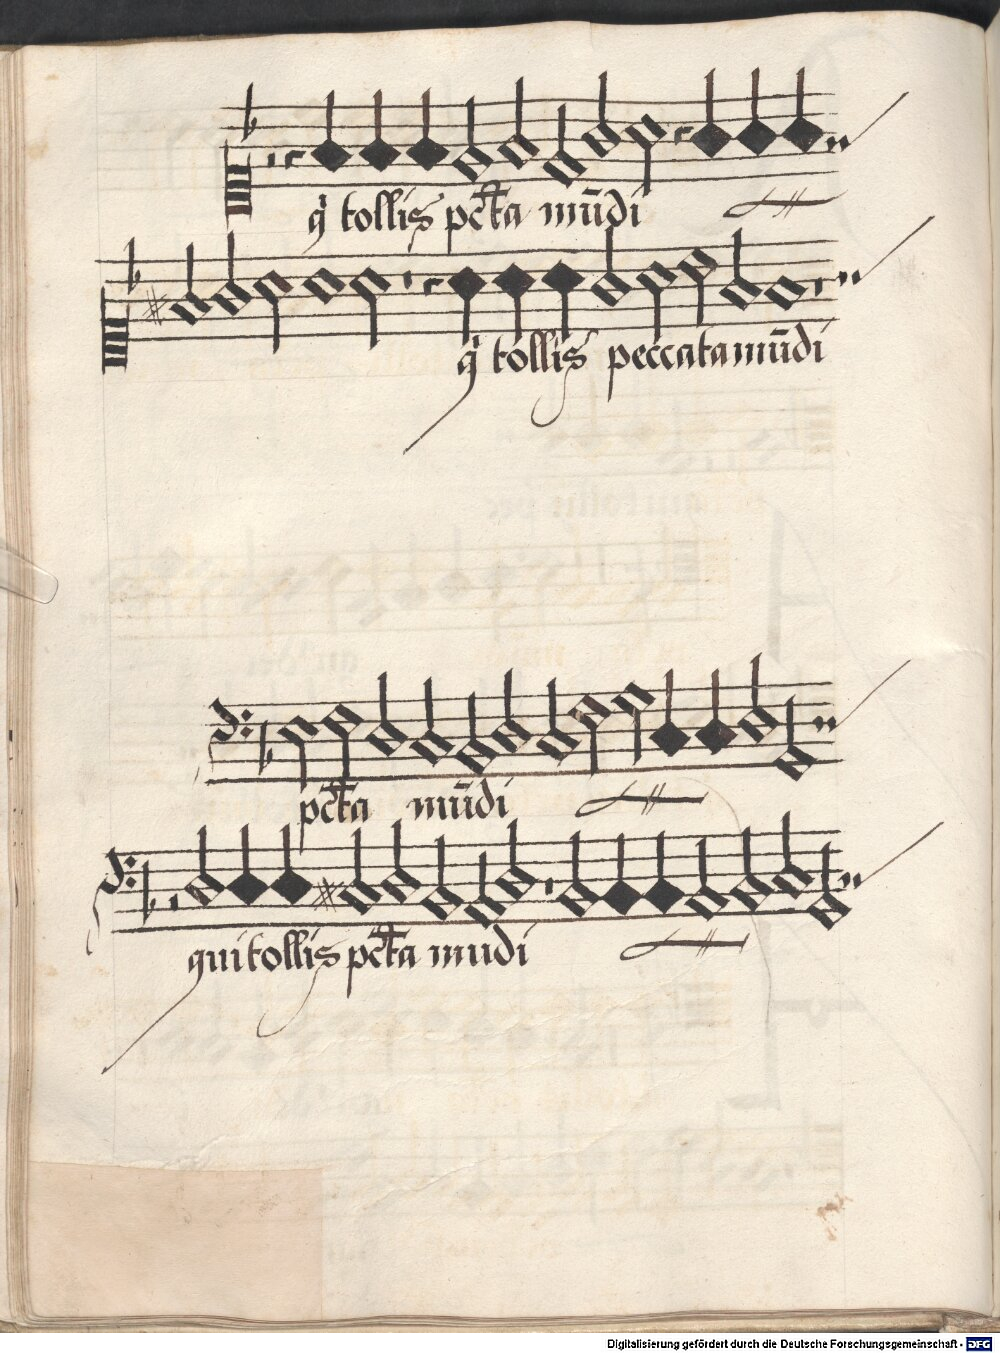 q tollis pc̄ta mūdi
q tollis peccata mūdi
pc̄ta mūdi
qui tollis pc̄ta mudi
Digitalisierung gefördert durch die Deutsche Forschungsgemeinschaft - DFG